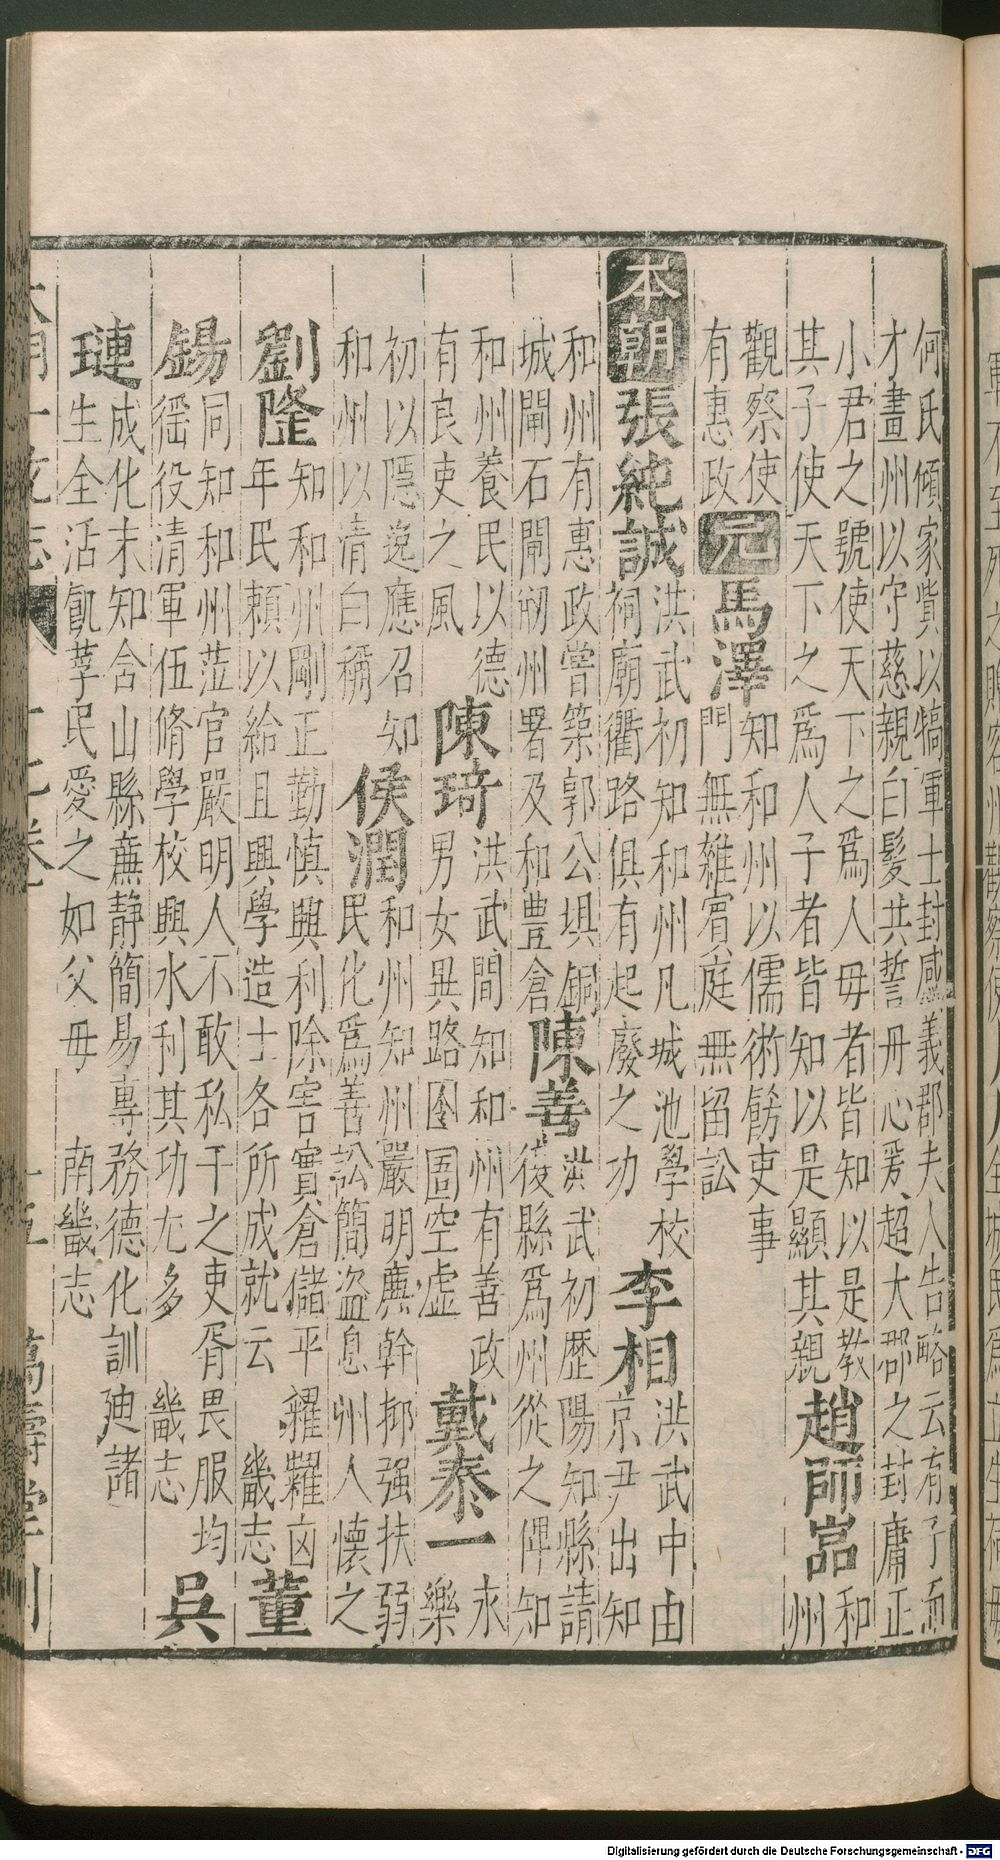 何氏傾家貲以犒軍士封感義郡夫人告略云有子而
才畫州以守慈親白髮共誓丹心爰超大郡之封庸正
小君之號使天下之爲人母者皆知以是教
其子使天下之爲人子者皆知以是顯其親
趙師嵓
和
州
觀察使
有惠政
元
馬澤
知和州以儒術飭吏事
門無雜賓庭無留訟
本朝
張純誠
洪武初知和州凡城池學校
祠廟衢路俱有起廢之功
李相
洪武中由
京尹出知
和州有惠政嘗築郭公埧銅
城閘石閘剏州署及和豊倉
陳善
洪武初歷陽知縣請
復縣爲州從之俾知
和州養民以德
有良吏之風
陳琦
洪武間知和州有善政
男女異路囹圄空虛
戴泰一
永
樂
初以隱逸應召知
和州以清白稱
侯潤
和州知州嚴明廉幹抑强扶弱
民化爲善訟簡盜息州人懷之
劉隆
知和州剛正勤慎興利除害實倉儲平糴糶凶
年民賴以給且興學造士各所成就云
畿志
董
錫
同知和州蒞官嚴明人不敢私干之吏胥畏服均
徭役清軍伍脩學校興水利其功尢多
畿志
吳
璉
成化末知含山縣廉靜簡易專務德化訓廸諸
生全活飢莩民愛之如父母
南畿志
萬壽堂刊
Digitalisierung gefördert durch die Deutsche Forschungsgemeinschaft - DFG